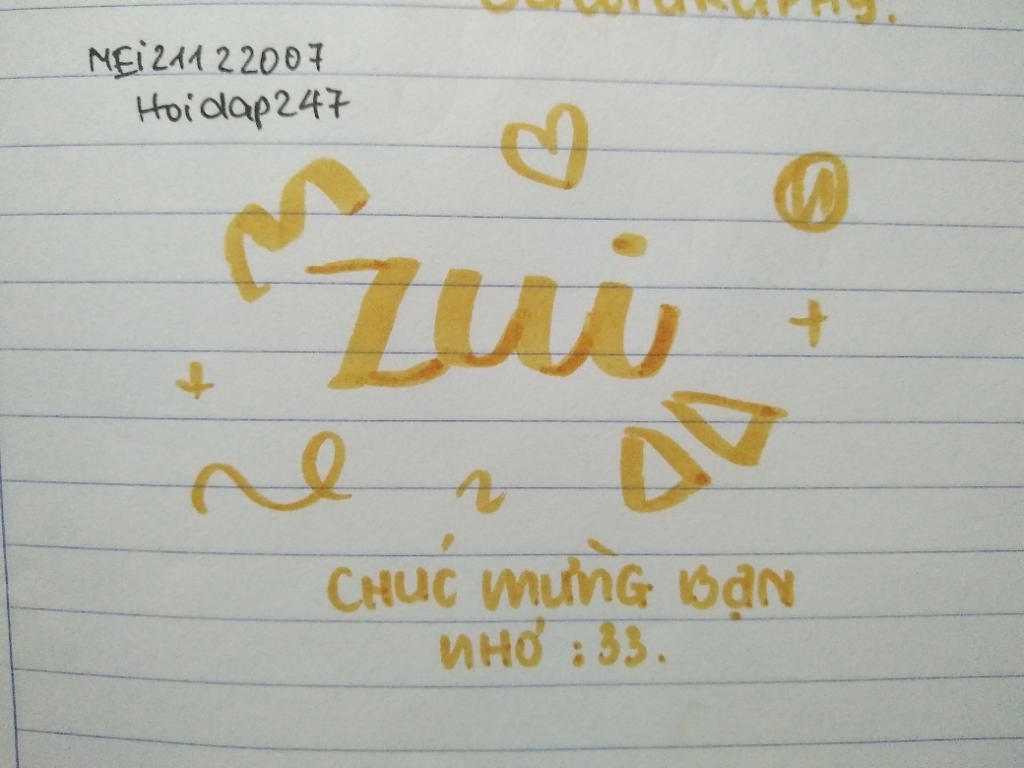 MEi21122007
Hoidap247
zui
CHÚC MỪNG BẠN
NHỚ :33.